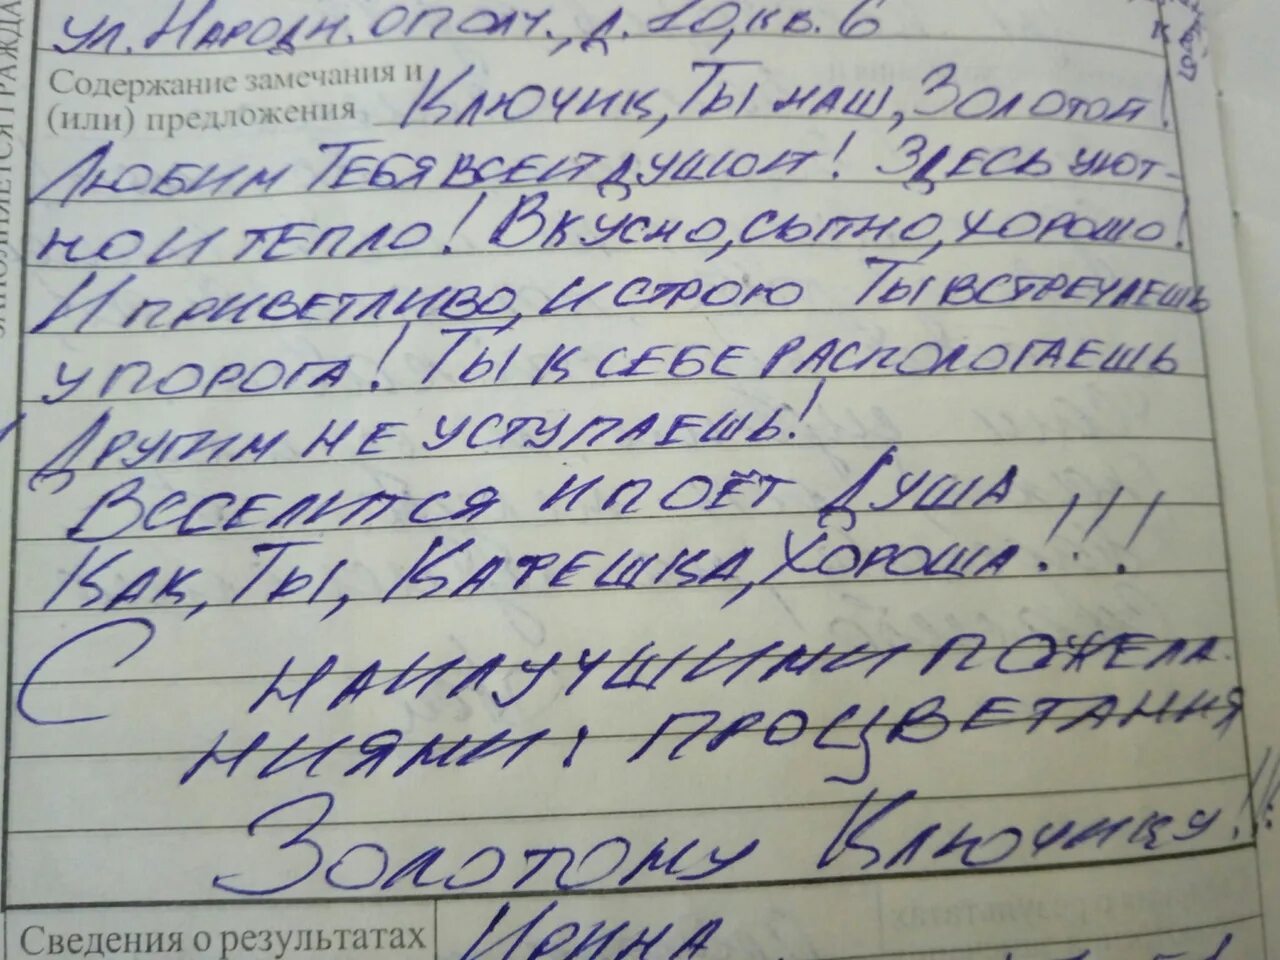 ул. Народн. ополч., д. 10, кв. 6
Содержание замечания и
(или) предложения
Ключик, Ты наш, Золотой!
Любим Тебя всей душой! Здесь уют-
но и тепло! Вкусно, сытно, хорошо!
И приветливо, и строю Ты встречаешь
у порога! Ты к себе распологаешь
Другим не уступаешь!
Вссселится и поёт Душа
Как, Ты, Кафешка, Хороша!!!
С наилучшими пожела-
ниями: процветания
Золотому Ключику!!!
Сведения о результатах
Ирина